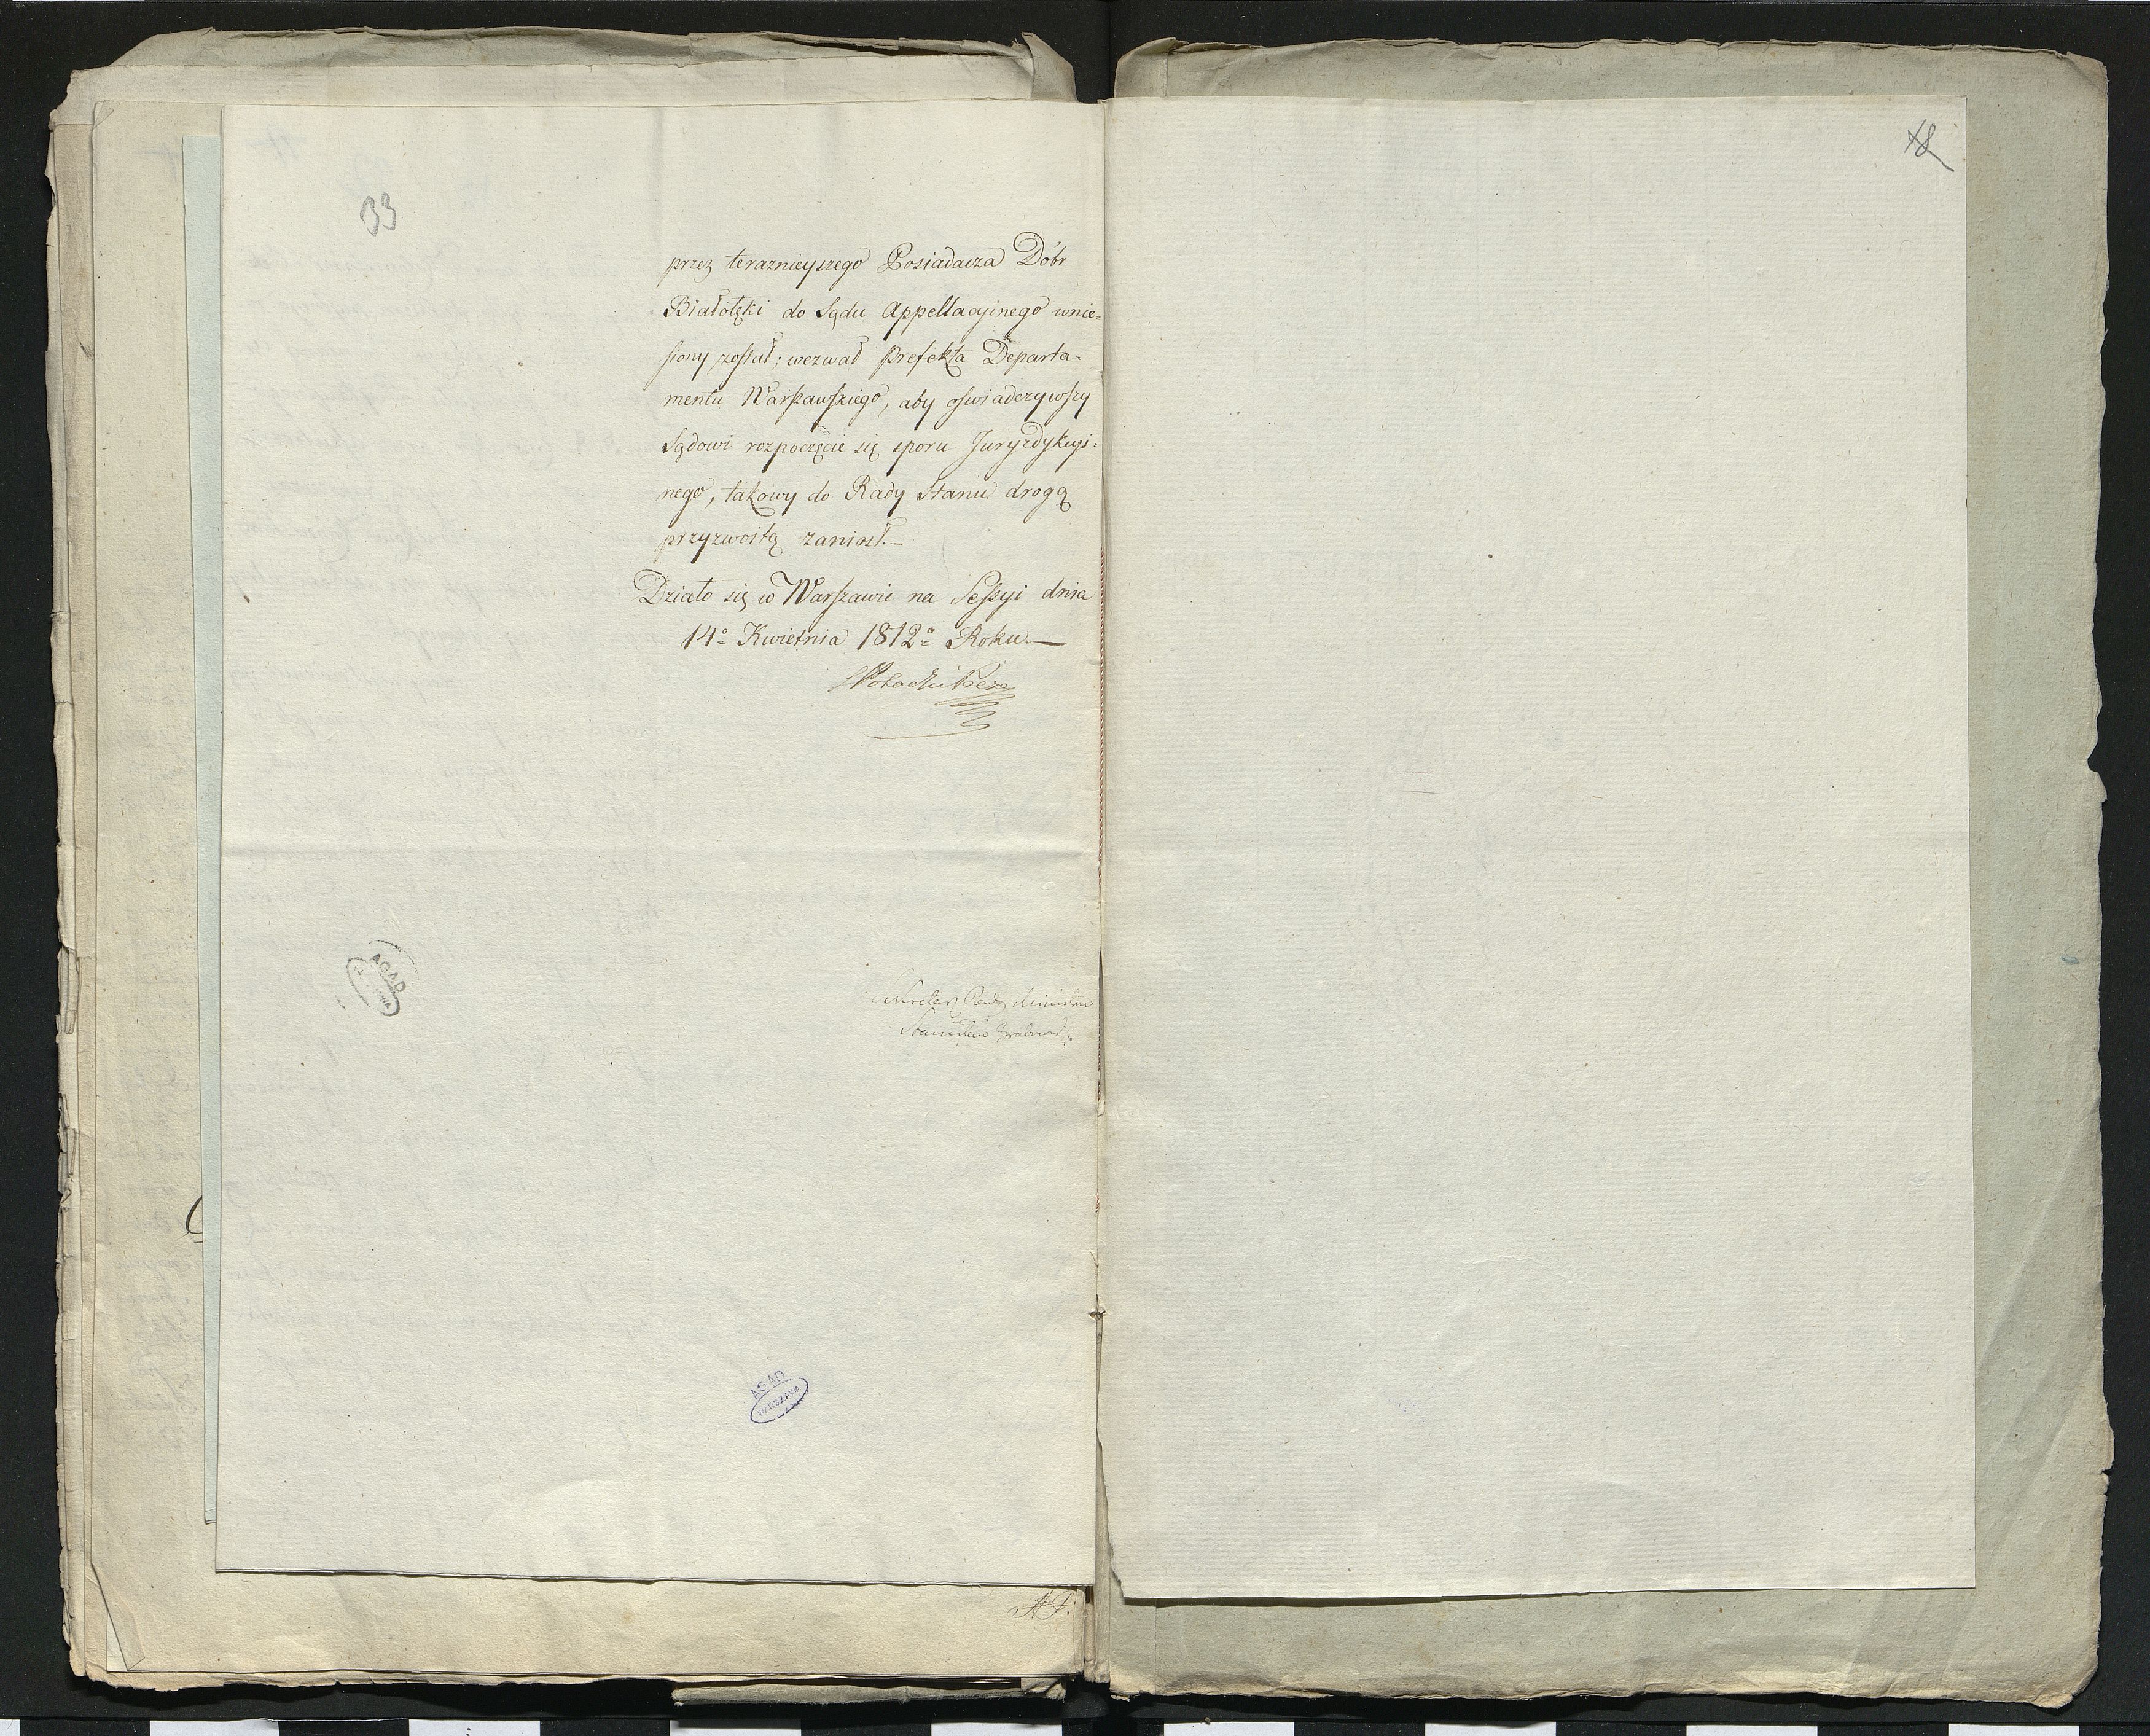 33
18
przez teraznieyszego Posiadacza Dóbr
Białołęki do Sądu Appellacyinego wnie=
siony został; wezwał Prefekta Departa=
mentu Warszawskiego, aby oświadczywszy
Sądowi rozpoczęcie się sporu Juryzdykcyi=
nego, takowy do Rady Stanu drogą
przyzwoitą zaniosł.—
Działo się w Warszawie na Sessyi dnia
14º Kwietnia 1812º Roku.—
SPotocki Prez
Sekretarz Rady Ministrów
Stanisław Grabowski
AGAD
AGAD
WARSZAWA